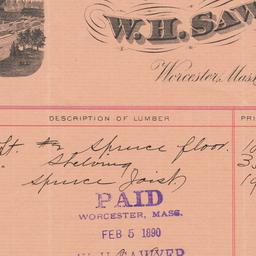 W. H. SAW
Worcester, Mass
DESCRIPTION OF LUMBER PRI
ft. #2 Spruce floor. 10
Shelving 3
Spruce Joist 19
PAID
WORCESTER, MASS.
FEB 5 1890
W. H. SAWYER